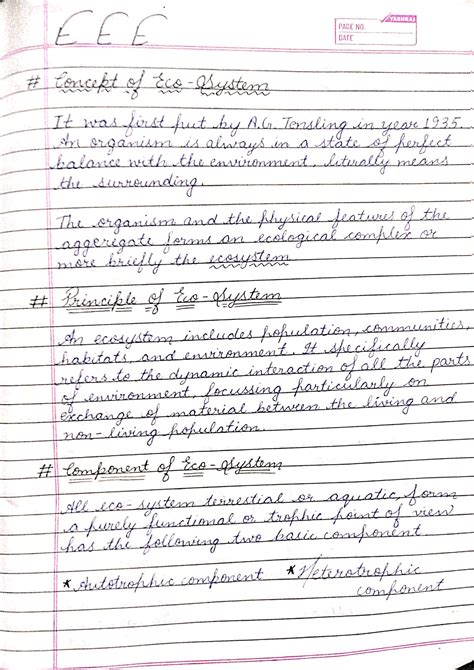 E E E
YASHRAJ
PAGE NO.
DATE
# Concept of Eco-System
It was first put by A.G. Tensling in year 1935.
An organism is always in a state of perfect
balance with the environment, literally means
the surrounding.
The organism and the physical features of the
aggregate forms an ecological complex or
more briefly the ecosystem
# Principle of Eco-System
An ecosystem includes population, communities,
habitats, and environment. It specifically
refers to the dynamic interaction of all the parts
of environment, focussing particularly on
exchange of material between the living and
non-living population.
# Component of Eco-System
All eco-system terrestial or aquatic, form
a purely functional or trophic point of view
has the following two basic component.
* Autotrophic component * Heterotrophic
component